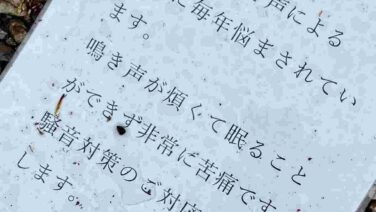 声による
に毎年悩まされてい
ます。
鳴き声が煩くて眠ること
ができず非常に苦痛です
騒音対策のご対応
します。